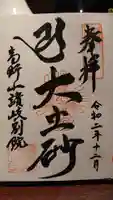 奉拝
令和二年十二月
大土砂
高野山讃岐別院